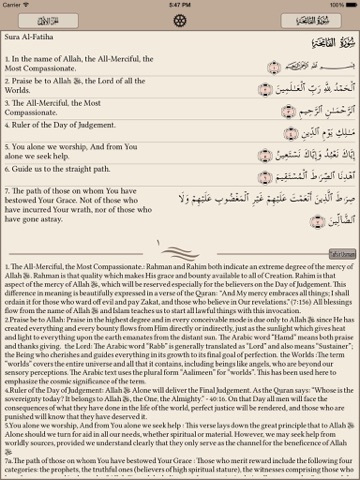 Carrier 5:47 PM 100%
الجزء الأول سورة الفاتحة
Sura Al-Fatiha سورة الفاتحة
1. In the name of Allah, the All-Merciful, the
Most Compassionate.
2. Praise be to Allah ﷻ, the Lord of all the ٱلْحَمْدُ لِلَّهِ رَبِّ ٱلْعَـٰلَمِينَ
Worlds.
3. The All-Merciful, the Most ٱلرَّحْمَـٰنِ ٱلرَّحِيمِ
Compassionate.
4. Ruler of the Day of Judgement. مَـٰلِكِ يَوْمِ ٱلدِّينِ
5. You alone we worship, And from You إِيَّاكَ نَعْبُدُ وَإِيَّاكَ نَسْتَعِينُ
alone we seek help.
6. Guide us to the straight path. ٱهْدِنَا ٱلصِّرَٰطَ ٱلْمُسْتَقِيمَ
7. The path of those on whom You have صِرَٰطَ ٱلَّذِينَ أَنْعَمْتَ عَلَيْهِمْ غَيْرِ ٱلْمَغْضُوبِ عَلَيْهِمْ وَلَا
bestowed Your Grace. Not of those who
have incurred Your wrath, nor of those who ٱلضَّآلِّينَ
have gone astray.
١
1. The All-Merciful, the Most Compassionate.: Rahman and Rahim both indicate an extreme degree of the mercy of
Allah ﷻ. Rahman is that quality which makes His grace and bounty available to all of Creation. Rahim is that
aspect of the mercy of Allah ﷻ, which will be reserved especially for the believers on the Day of Judgement. This
difference in meaning is beautifully expressed in a verse of the Quran: "And My mercy embraces all things; I shall
ordain it for those who ward off evil and pay Zakat, and those who believe in Our revelations." (7:156) All blessings
flow from the name of Allah ﷻ and Islam teaches us to start all lawful things with this invocation.
2.Praise be to Allah: Praise in the highest degree and in every conceivable mode is due only to Allah ﷻ since He has
created everything and every bounty flows from Him directly or indirectly, just as the sunlight which gives heat
and light to everything upon the earth emanates from the distant sun. The Arabic word "Hamd" means both praise
and thanks giving. the Lord: The Arabic word "Rabb" is generally translated as "Lord" and also means "Sustainer";
the Being who cherishes and guides everything in its growth to its final goal of perfection. the Worlds :The term
"worlds" covers the entire universe and all that it contains, including beings like angels, who are beyond our
sensory perceptions. The Arabic text uses the plural form "Aalimeen" for "worlds". This has been used here to
emphasise the cosmic significance of the term.
4.Ruler of the Day of Judgement: Allah ﷻ Alone will deliver the Final Judgement. As the Quran says: "Whose is the
sovereignty today? It belongs to Allah ﷻ, the One, the Almighty." - 40:16. On that Day all men will face the
consequences of what they have done in the life of the world, perfect justice will be rendered, and those who are
punished will know that they have deserved it.
5.You alone we worship, And from You alone we seek help : This verse lays down the great principle that to Allah ﷻ
Alone should we turn for aid in all our needs, whether spiritual or material. However, we may seek help from
worldly sources, provided we understand clearly that they only serve as the channel for the beneficence of Allah
ﷻ
7a.The path of those on whom You have bestowed Your Grace : Those who merit reward include the following four
categories: the prophets, the truthful ones (believers of high spiritual stature), the witnesses comprising those who